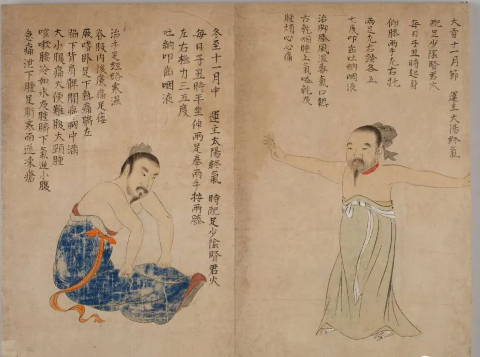 大雪十一月節　運主太陽終氣
配足少陰腎君火
每日子丑時起身
仰膝兩手左右托
兩足左右踏各五
七度叩齒吐納咽液
治脚膝風濕毒氣口熱
舌乾咽腫上氣嗌乾及
腫煩心心痛
冬至十一月中　運主太陽終氣　時配足少陰腎君火
每日子丑時平坐伸兩足拳兩手按兩膝
左右極力三五度
吐納叩齒咽液
治手足經絡寒濕
脊股內後廉痛足痿
厥嗜卧足下熱臍痛左
脇下背肩髀間痛胸中滿
大小腹痛大便難腹大頸腫
咳嗽腰冷如水及腫臍下氣逆小腹
急痛泄下腫足胻寒而逆凍瘡